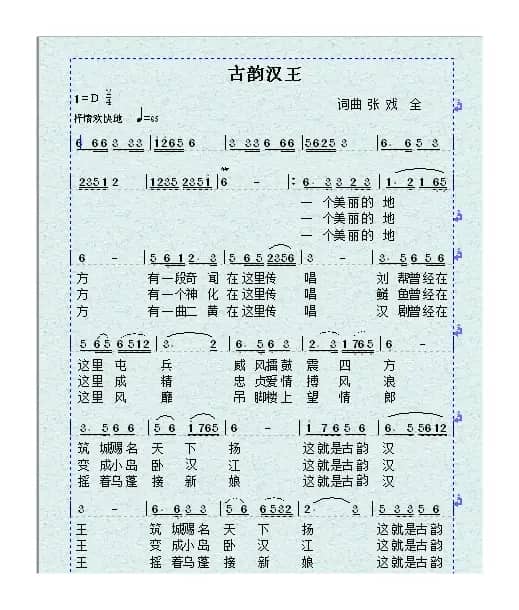 古韵汉王
1=D 2/4
词曲 张 戏 全
抒情欢快地 ♩=65
6 66 3 33 | 1265 6 | 3 33 6 66 | 5625 3 | 6. 65 3
2351 2 | 1235 2351 | 6 - :6. 3 3 2 3 | 1. 2 1 65
一 个美丽的 地
一 个美丽的 地
一 个美丽的 地
6 - | 5 6 1 2. 3 | 5 6 5 2356 | 3 - | 3. 5 6 5 6
方 有一段奇 闻 在这里传 唱 刘 帮曾经在
方 有一个神 化 在这里传 唱 鲢 鱼曾经在
方 有一曲二 黄 在这里传 唱 汉 剧曾经在
5 65 6512 | 3. 2 | 6. 5 6 3 | 2. 3 1 765 | 6 -
这里 屯 兵 威 风擂鼓 震 四 方
这里 成 精 忠 贞爱情 搏 风 浪
这里 风 靡 吊 脚楼上 望 情 郎
3. 5 6 1 | 5 6 1 765 | 6 - | 1 7 6 5 6 | 6. 5 5612
筑 城赐名 天 下 扬 这就是古韵 汉
变 成小岛 卧 汉 江 这就是古韵 汉
摇 着乌蓬 接 新 娘 这就是古韵 汉
3 - | 6. 3 3 3 | 5 6 6532 | 2. 3 | 5 3 3 5 6
王 筑 城赐名 天 下 扬 这就是古韵
王 变 成小岛 卧 汉 江 这就是古韵
王 摇 着乌蓬 接 新 娘 这就是古韵